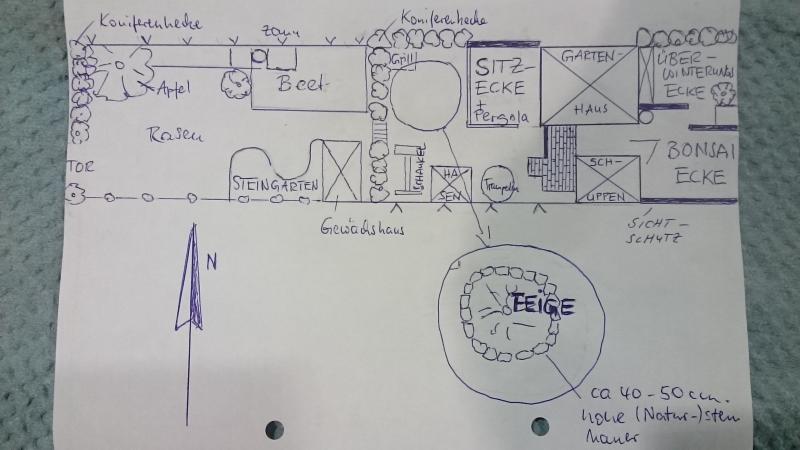 Koniferenhecke
Zaun
Koniferenhecke
Grill
SITZ-
ECKE
+
Pergola
GARTEN-
HAUS
ÜBER-
WINTERUNGS
ECKE
Apfel
Beet
Rasen
TOR
STEINGARTEN
SCHAUKEL
HA
SEN
Trampolin
SCH-
UPPEN
BONSAI
ECKE
Gewächshaus
SICHT-
SCHUTZ
N
FEIGE
ca 40-50 cm.
hohe (Natur-)stein
mauer